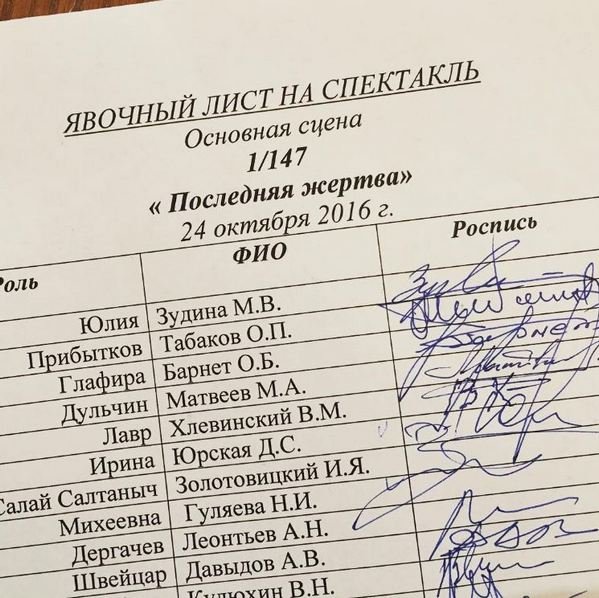 ЯВОЧНЫЙ ЛИСТ НА СПЕКТАКЛЬ
Основная сцена
1/147
« Последняя жертва»
24 октября 2016 г.
Роль ФИО Роспись
Юлия Зудина М.В.
Прибытков Табаков О.П.
Глафира Барнет О.Б.
Дульчин Матвеев М.А.
Лавр Хлевинский В.М.
Ирина Юрская Д.С.
Салай Салтаныч Золотовицкий И.Я.
Михеевна Гуляева Н.И.
Дергачев Леонтьев А.Н.
Швейцар Давыдов А.В.
Кулюхин В.Н.